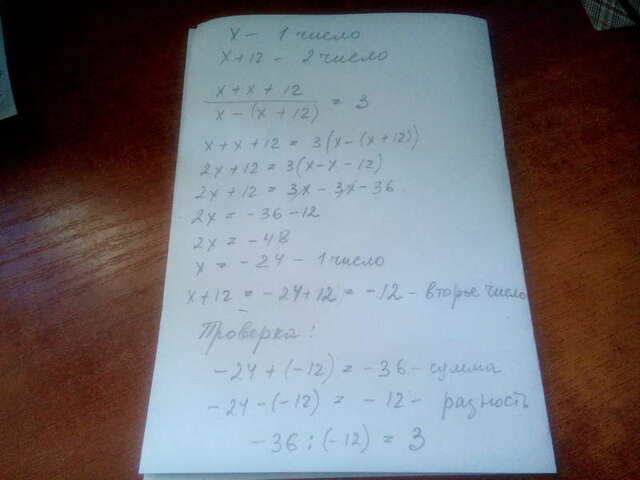 x - 1 число
x+12 - 2 число
x + x + 12
x - (x + 12) = 3
x + x + 12 = 3(x - (x + 12))
2x + 12 = 3(x - x - 12)
2x + 12 = 3x - 3x - 36
2x = -36 - 12
2x = -48
x = -24 - 1 число
x+12 = -24+12 = -12 - второе число
Проверка:
-24 + (-12) = -36 - сумма
-24 - (-12) = -12 - разность
-36 : (-12) = 3